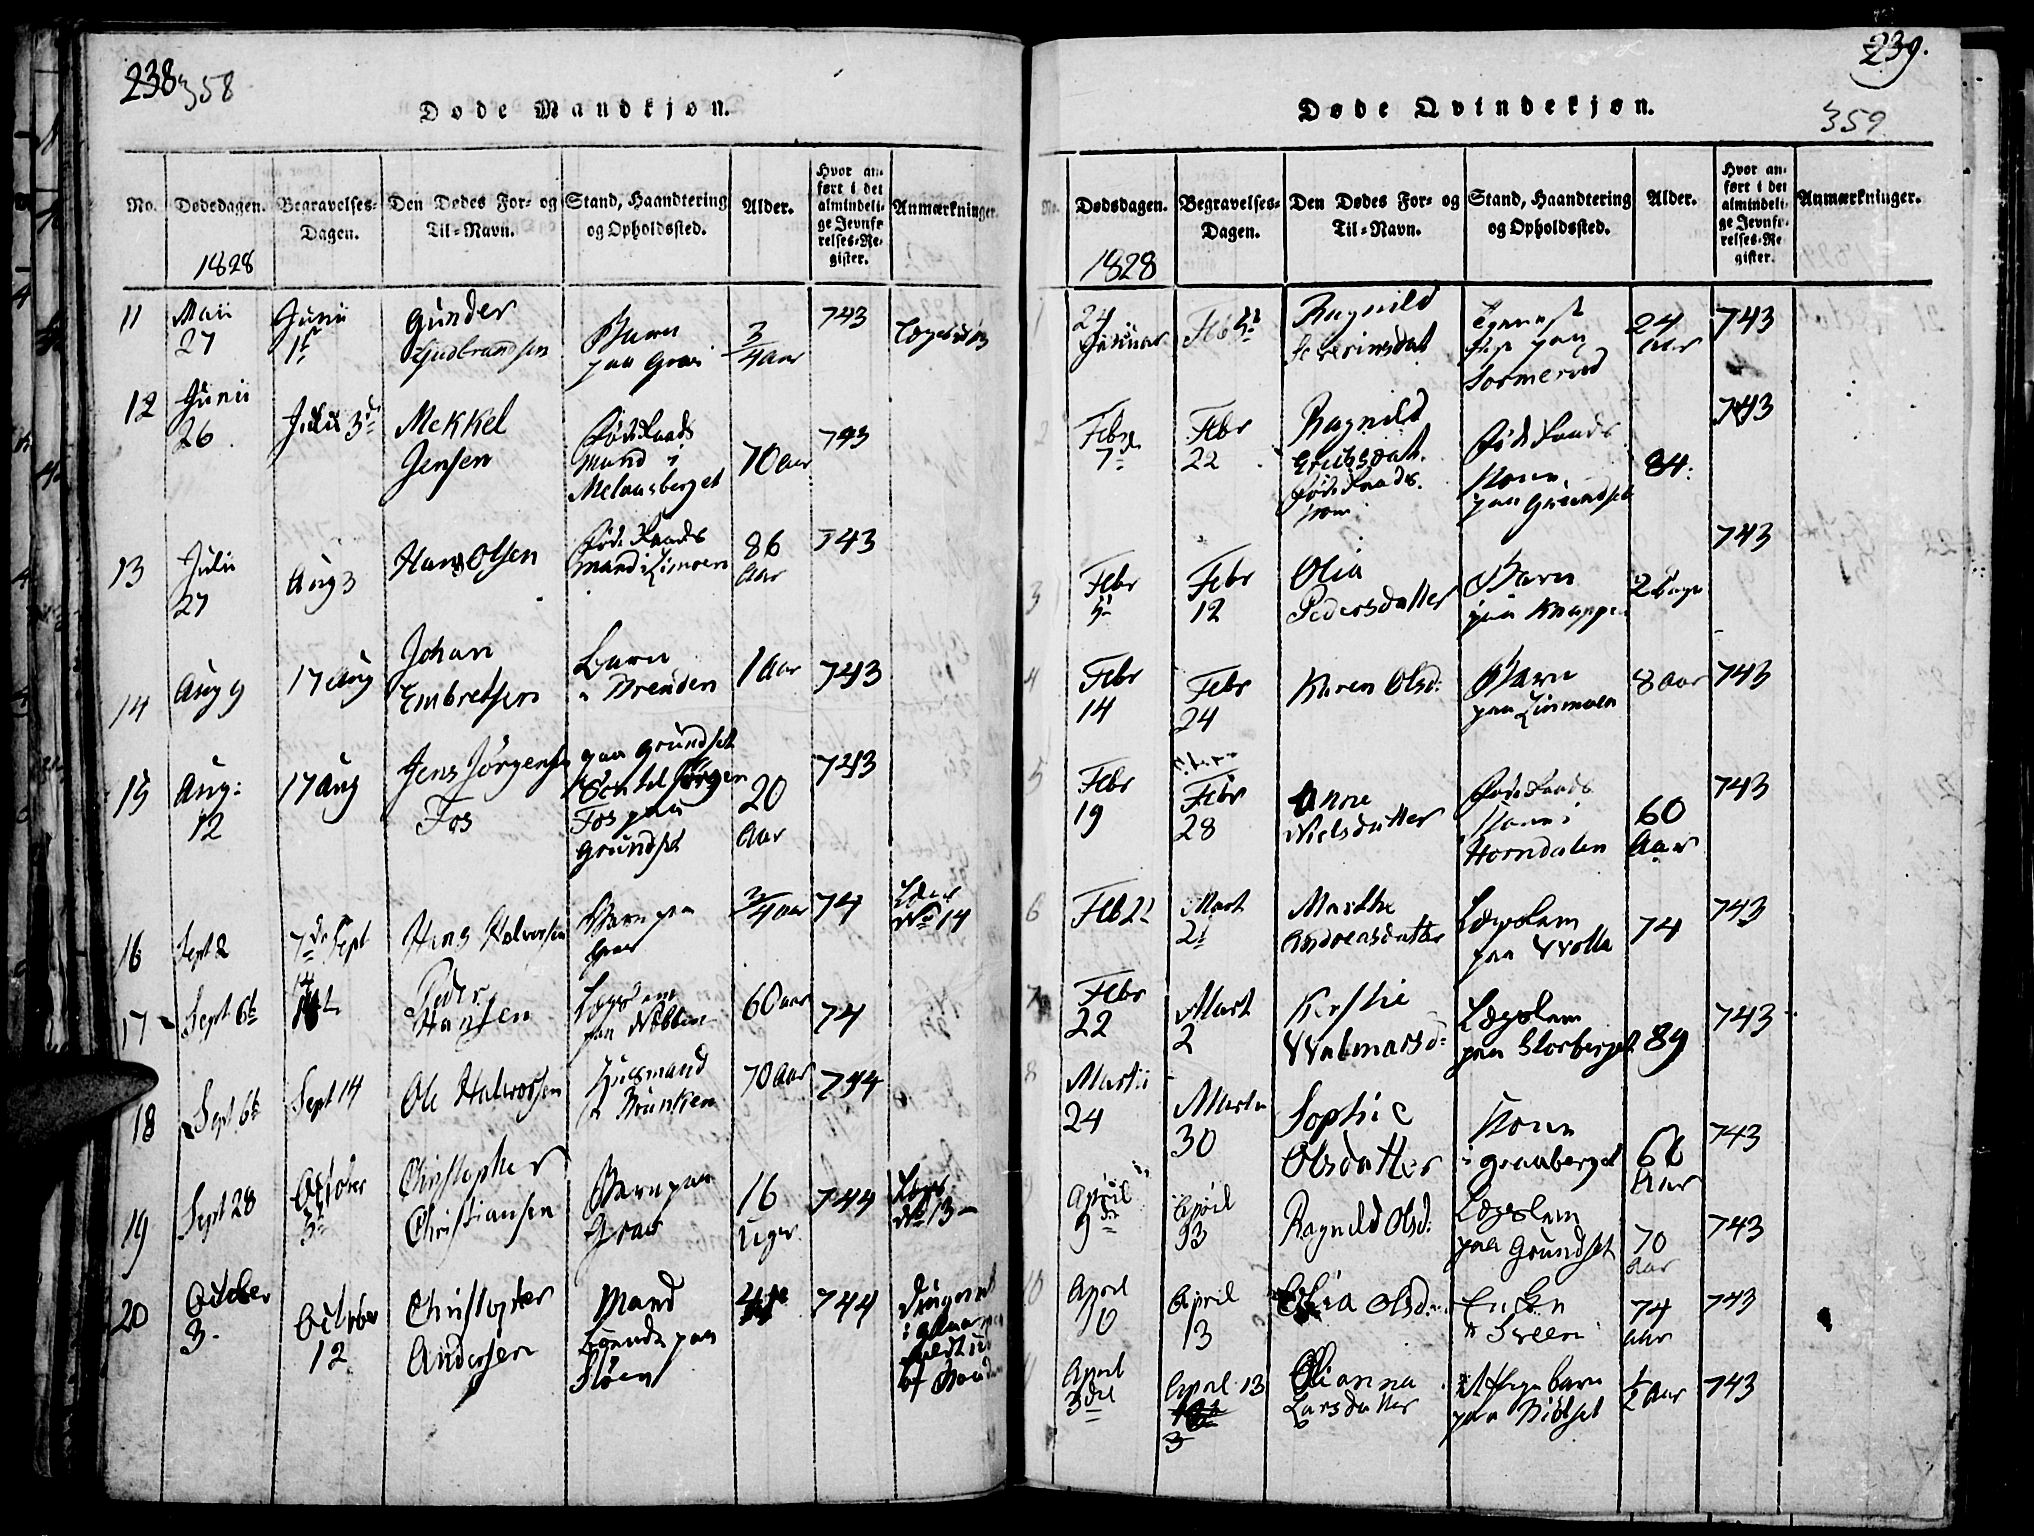 238 358
Døde Mandkjøn.
No.
Dødedagen.
1828
Begravelses-
Dagen.
Den Dødes For- og
Til-Navn.
Stand, Haandtering
og Opholdssted.
Alder.
Hvor an-
ført i det
almindeli-
ge Jevnfø-
relses-Re-
gister.
Anmærkninger
11
Maii
27
Junii
1
Gunder
Gudbrandsen
Barn
paa
3/4 Aar
743
12
Junii
26
Julii 3
Mekkel
Jensen
Føderaads
Mand i
Melaasberget
70 Aar
743
13
Julii
27
Aug 3
Hans Olsen
Føderaads
Mand i Limoen
86
Aar
743
14
Aug 9
17 Aug
Johan
Embretsen
Barn
i Brenden
1 Aar
743
15
Aug:
12
17 Aug
Jens Jörgensen
Fos
paa Grundset
Jörgen
Fos paa
Grundset
20
Aar
743
16
Sept 2
7de Sept
Hans Halvorsen
Barn paa
3/4 Aar
74
No 14
17
Sept 6
14
Peder
Hansen
Lægdslem
paa
60 Aar
74
18
Sept 6
Sept 14
Ole Halvorsen
Huusmand
70 Aar
744
19
Sept 28
October
5
Christopher
Christiansen
Barn paa
16
Uger
744
No 13
20
October
3
October
12
Christopher
Andersen
Mand
paa
Sløen
744
239.
359
Døde Qvindekjøn.
No.
Dødsdagen.
1828
Begravelses-
Dagen.
Den Dødes For- og
Til-Navn.
Stand, Haandtering
og Opholdssted.
Alder.
Hvor an-
ført i det
almindeli-
ge Jevnfø-
relses-Re-
gister.
Anmærkninger.
1
24
Januar
Feb
Ragnild
Severinsdat
paa
Sormerud
24
Aar
743
2
Febr
7
Febr
22
Ragnild
Erichsdat.
Føderaads.
Kone
Føderaads
Kone
paa Grundset
84.
743
3
Febr
5
Febr
12
Olia
Pedersdatter
Barn
paa Knappe
2 Dage
743
4
Febr
14
Febr
24
Karen Olsd:
Barn
paa Linmoen
8 Aar
743
5
Febr
19
Febr
28
Anne
Nielsdatter
Føderaads
Kone i
Horndalen
60
Aar
743
6
Feb 21
Mart
2
Marthe
Andreasdatter
Lægdslem
paa Wolla
74
743
7
Febr
22
Mart
2
Kerstie
Walmarsd:
Lægdslem
paa Storberget
89
743
8
Martii
24
Martii
30
Sophie
Olsdatter
Kone
i Graaberget
Aar
743
9
April
9de
April
13
Ragnild Olsd:
Lægdslem
paa Grundset
70
Aar
743
10
April
10
April
13
Olia Olsd:
Enken
i Sveen
74
Aar
743
11
April
3die
April 13
3
Olianna
Larsdatter
barn
paa
1/2 Aar
743